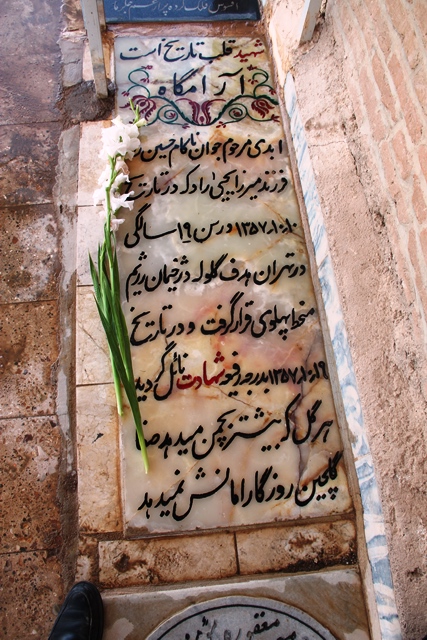 افسوس فلک زده پرپر
شهید قلب تاریخ است
آرامگاه
ابدی مرحوم جوان ناکام حسین
فرزند میرزا یحیی راد که در تاریخ
۱۳۵۷،۱۰،۱۰ در سن ۱۹ سالگی
در تهران هدف گلوله دژخیمان رژیم
منحط پهلوی قرار گرفت و در تاریخ
۱۳۵۷،۱۰،۱۹ بدرجه رفیع شهادت نائل گردید
هر گل که بیشتر بچمن میدهد صفا
گلچین روزگار امانش نمیدهد